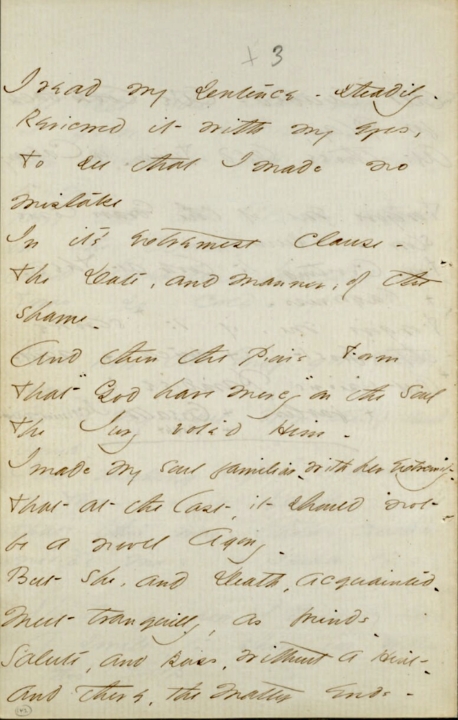 + 3
I read my sentence - steadily -
Reviewed it with my eyes,
To see that I made no
mistake
In its extremest clause -
The Date, and manner, of the
shame -
And then the Pious Form
That "God have mercy" on the Soul
The Jury voted Him -
I made my soul familiar - with her extremity -
That at the last, it should not
be a novel Agony -
But she, and Death, acquainted -
Meet tranquilly, as friends -
Salute, and pass, without a Hint -
And there, the Matter ends -